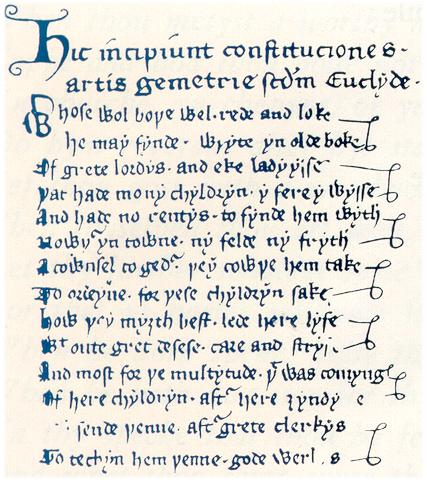 Hic incipiunt constituciones
artis gemetrie scdm Euclyde.
Whose wol boþe wel rede and loke
he may fynde wryte yn olde boke
Of grete lordys and eke ladyysse
þat hade mony chyldryn y fere y wysse
And hade no rentys to fynde hem wyth
nowþr yn towne ny felde ny fryth
A cownsel togedr þey cowþe hem take
To ordeyne for þese chyldryn sake
how þey myȝth best lede here lyfe
Wt oute gret desese care and stryf
And most for þe multytude þt was comyng
Of here chyldryn aftr here
sende þenne aftr grete clerkys
To techyn hem þenne gode werkys